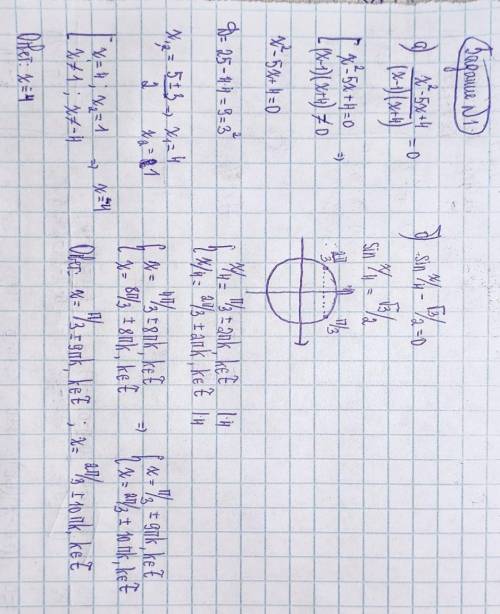 Задание №1.
а) x²-5x+4/(x-1)(x+4) = 0
[x²-5x+4=0
(x-1)(x+4) ≠ 0 ⇒
x²-5x+4=0
D=25-4·4=9=3²
x₁,₂ = 5±3/2 ⇒ x₁=4
x₂=1
[x₁=4; x₂=1
x≠1; x≠-4 ⇒ x=4
Ответ: x=4
б) sin x/4 - √3/2 = 0
sin x/4 = √3/2
2π/3 π/3
{x/4 = π/3 ± 2πk, k∈Z |·4
x/4 = 2π/3 ± 2πk, k∈Z |·4
{x = 4π/3 ± 8πk, k∈Z
x = 8π/3 ± 8πk, k∈Z ⇒
{x = π/3 ± 9πk, k∈Z
x = 2π/3 ± 10πk, k∈Z
Ответ: x = π/3 ± 9πk, k∈Z ; x = 2π/3 ± 10πk, k∈Z